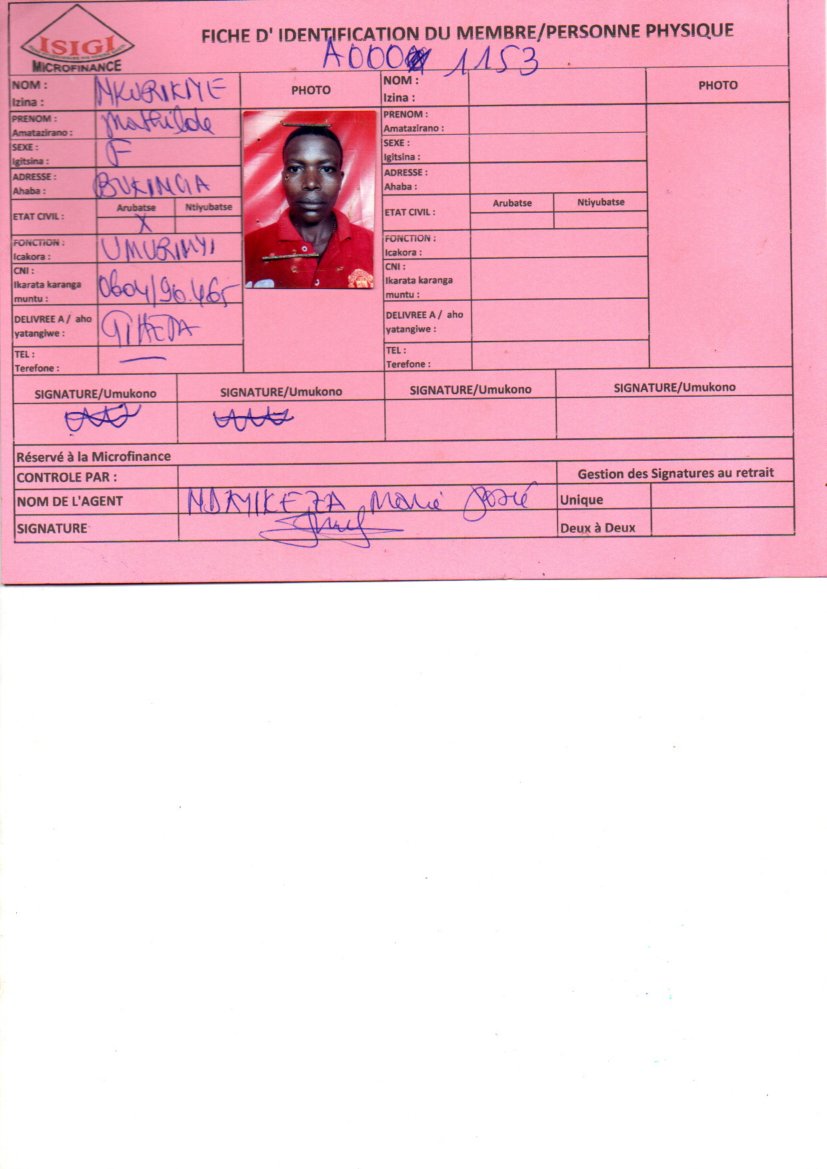 ISIGI
MICROFINANCE
FICHE D' IDENTIFICATION DU MEMBRE/PERSONNE PHYSIQUE
A000 1153
NOM :
Izina :
NKURIKIYE
PHOTO
PRENOM :
Amatazirano :
Mathilde
SEXE :
Igitsina :
F
ADRESSE :
Ahaba :
BUKINGA
ETAT CIVIL :
Arubatse
Ntiyubatse
X
FONCTION :
Icakora :
UMURIMYI
CNI :
Ikarata karanga
muntu :
0604/96.465
DELIVREE A / aho
yatangiwe :
GIHETA
TEL :
Terefone :
NOM :
Izina :
PHOTO
PRENOM :
Amatazirano :
SEXE :
Igitsina :
ADRESSE :
Ahaba :
ETAT CIVIL :
Arubatse
Ntiyubatse
FONCTION :
Icakora :
CNI :
Ikarata karanga
muntu :
DELIVREE A / aho
yatangiwe :
TEL :
Terefone :
SIGNATURE/Umukono SIGNATURE/Umukono SIGNATURE/Umukono SIGNATURE/Umukono
Réservé à la Microfinance
CONTROLE PAR :
Gestion des Signatures au retrait
NOM DE L'AGENT NDAYIKEZA Marie José Unique
SIGNATURE Deux à Deux